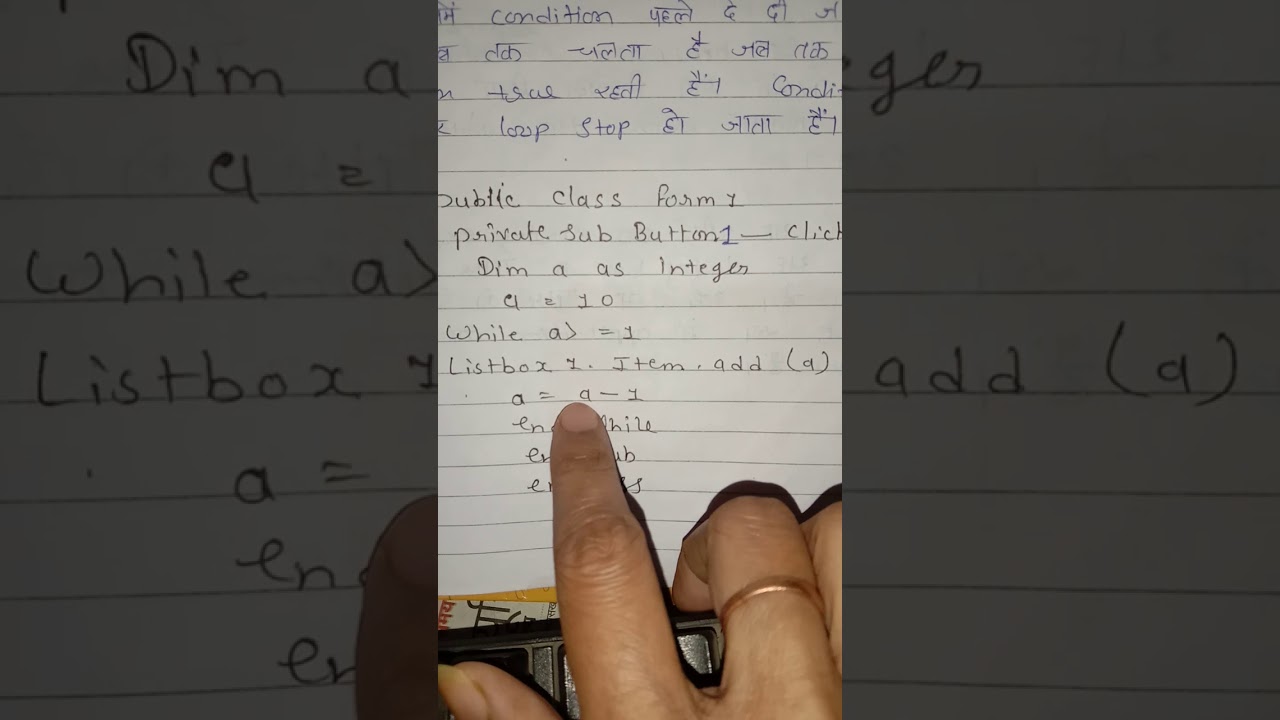 condition पहले दे दी
तक चलता है जब तक
true रहती हैं। Condi-
loop stop हो जाता हैं।
public class form1
private sub Button1 — click
Dim a as integer
a = 10
while a> = 1
Listbox 1. Item. add (a)
a = a - 1
end while
end sub